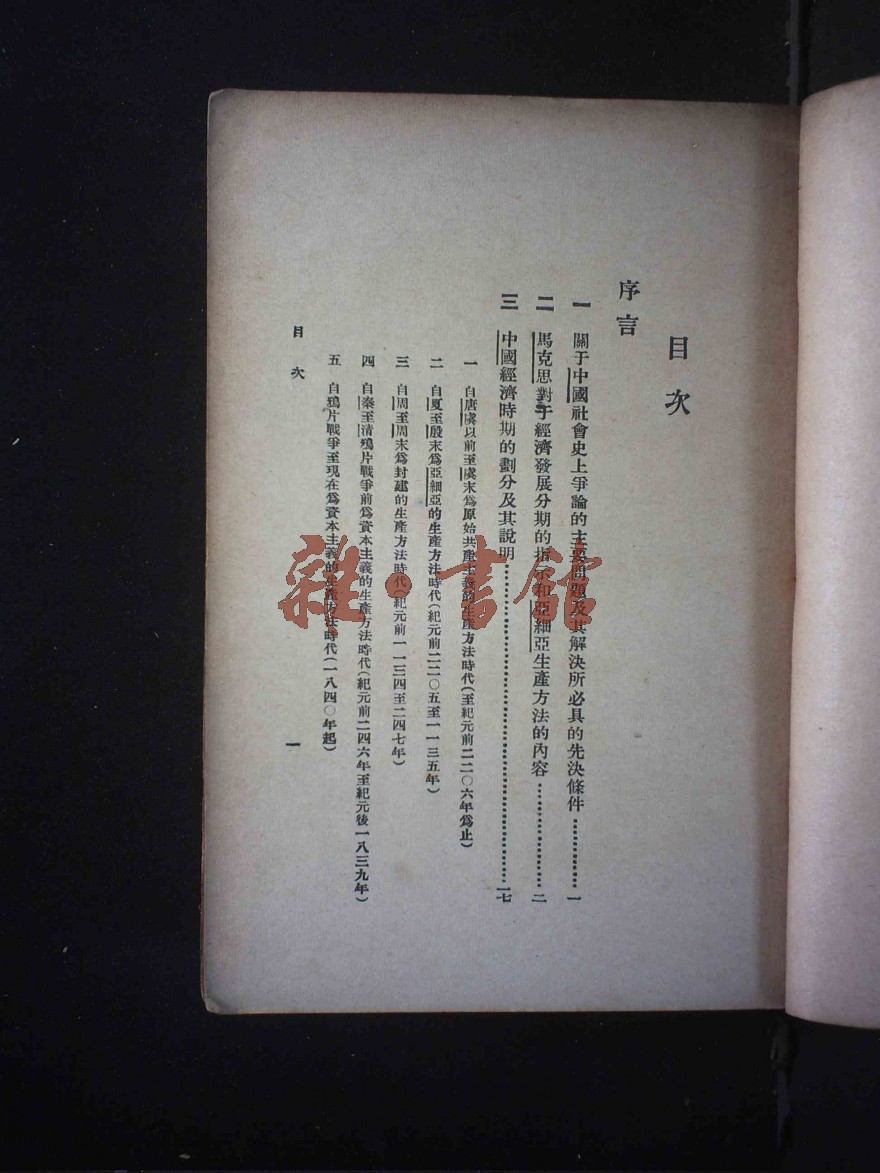 目次
序言
一 關于中國社會史上爭論的主要問題及其解決所必具的先決條件…………一
二 馬克思對于經濟發展分期的指示和亞細亞生產方法的內容…………二
三 中國經濟時期的劃分及其說明…………一七
一 自唐虞以前至虞末爲原始共產主義的生產方法時代(至紀元前二二〇六年爲止)
二 自夏至殷末爲亞細亞的生產方法時代(紀元前二二〇五至一一三五年)
三 自周至周末爲封建的生產方法時代(紀元前一一三四至二四七年)
四 自秦至清鴉片戰爭前爲資本主義的生產方法時代(紀元前二四六年至紀元後一八三九年)
五 自鴉片戰爭至現在爲資本主義的生產方法時代(一八四〇年起)
目次
一
雜·書館